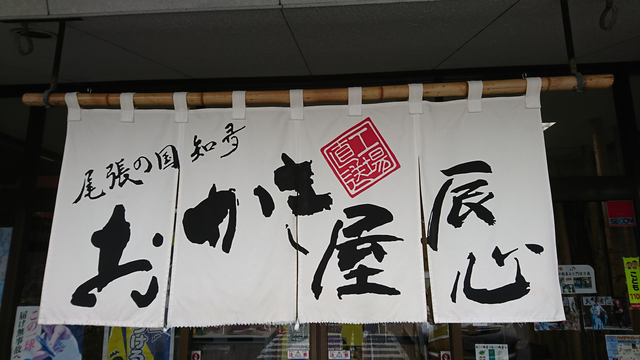 尾張の国 知多
おかき屋
辰心
工場
直販